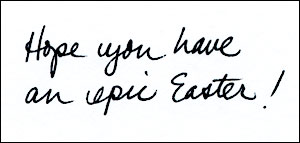 Hope you have
an epic Easter!